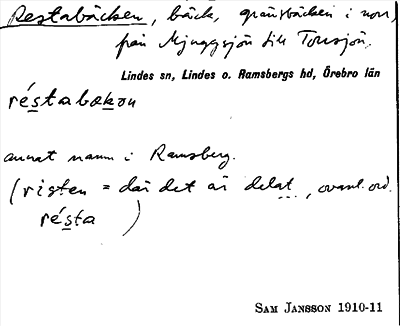 Restabäcken, bäck, gränsbäcken i norr,
från Mjuggsjön till Torrsjön.
Lindes sn, Lindes o. Ramsbergs hd, Örebro län
réstabækου
annat namn i Ramsberg.
(risten = där det är delat, ovanl. ord.
résta)
SAM JANSSON 1910-11